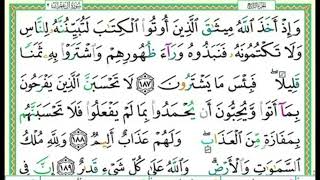 وَإِذْ أَخَذَ اللَّهُ مِيثَٰقَ الَّذِينَ أُوتُوا۟ الْكِتَٰبَ لَتُبَيِّنُنَّهُۥ لِلنَّاسِ
وَلَا تَكْتُمُونَهُۥ فَنَبَذُوهُ وَرَآءَ ظُهُورِهِمْ وَاشْتَرَوْا۟ بِهِۦ ثَمَنًا
قَلِيلًا ۖ فَبِئْسَ مَا يَشْتَرُونَ ١٨٧ لَا تَحْسَبَنَّ الَّذِينَ يَفْرَحُونَ
بِمَآ أَتَوا۟ وَّيُحِبُّونَ أَن يُحْمَدُوا۟ بِمَا لَمْ يَفْعَلُوا۟ فَلَا تَحْسَبَنَّهُم
بِمَفَازَةٍ مِّنَ الْعَذَابِ ۖ وَلَهُمْ عَذَابٌ أَلِيمٌ ١٨٨ وَلِلَّهِ مُلْكُ
السَّمَٰوَٰتِ وَالْأَرْضِ ۗ وَاللَّهُ عَلَىٰ كُلِّ شَىْءٍ قَدِيرٌ ١٨٩ إِنَّ فِى